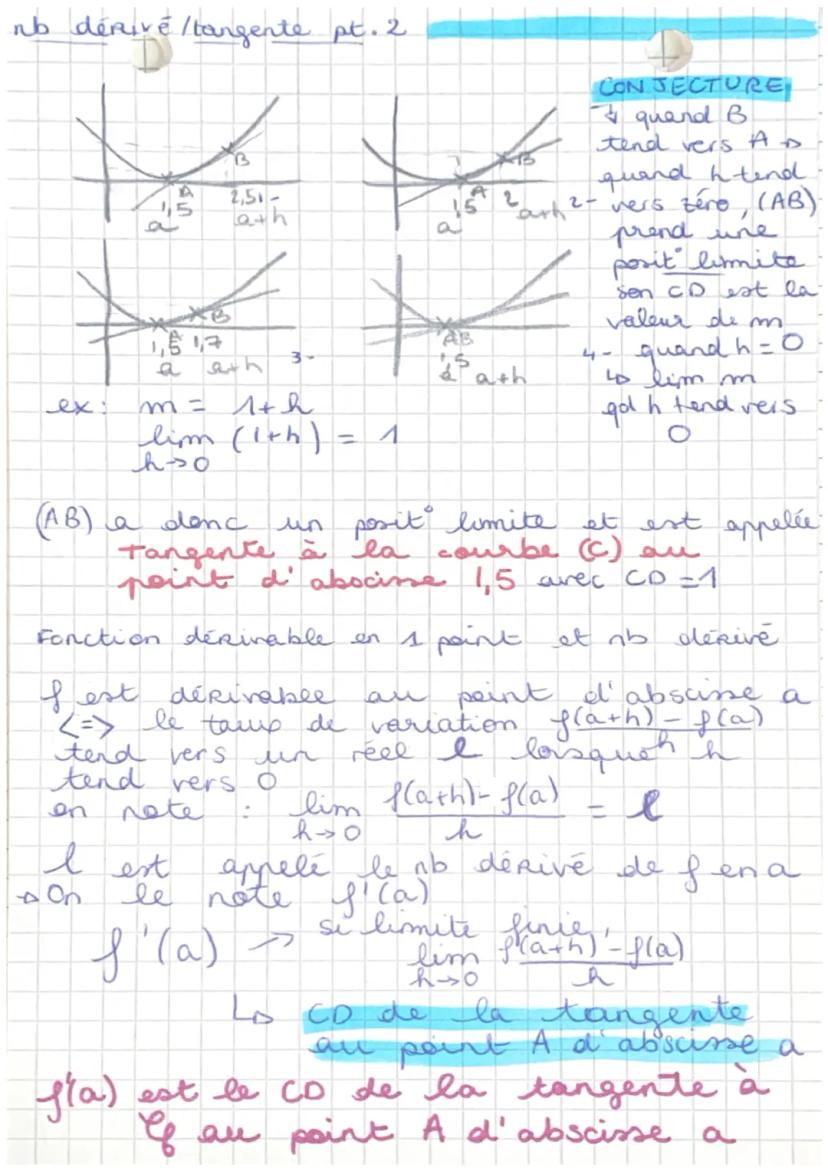 nb dérivé/tangente pt. 2
CONJECTURE
↳ quand B
tend vers A →
quand h tend
vers zéro, (AB)
prend une
posit° limite
son CD est la
valeur de m
quand h = 0
↳ lim m
qd h tend vers
0
B
A
1,5
2,5
1-
a
a+h
B
A
1,5
2
2-
a
a+h
B
A
1,5 1,7
a a+h
3-
AB
1,5
a a+h
4-
ex: m = 1+h
lim (1+h) = 1
h→0
(AB) a donc un posit° limite et est appelée
tangente à la courbe (C) au
point d'abscisse 1,5 avec CD = 1
Fonction dérivable en 1 point et nb dérivé
f est dérivable au point d'abscisse a
<=> le taux de variation f(a+h) - f(a)
h
tend vers un réel l lorsque h
tend vers 0
on note : lim f(a+h)- f(a) = l
h→0 h
l est appelé le nb dérivé de f en a
→ On le note f'(a)
f'(a) → si limite finie,
lim f(a+h) - f(a)
h→0 h
↳ CD de la tangente
au point A d'abscisse a
f'(a) est le CD de la tangente à
Cf au point A d'abscisse a